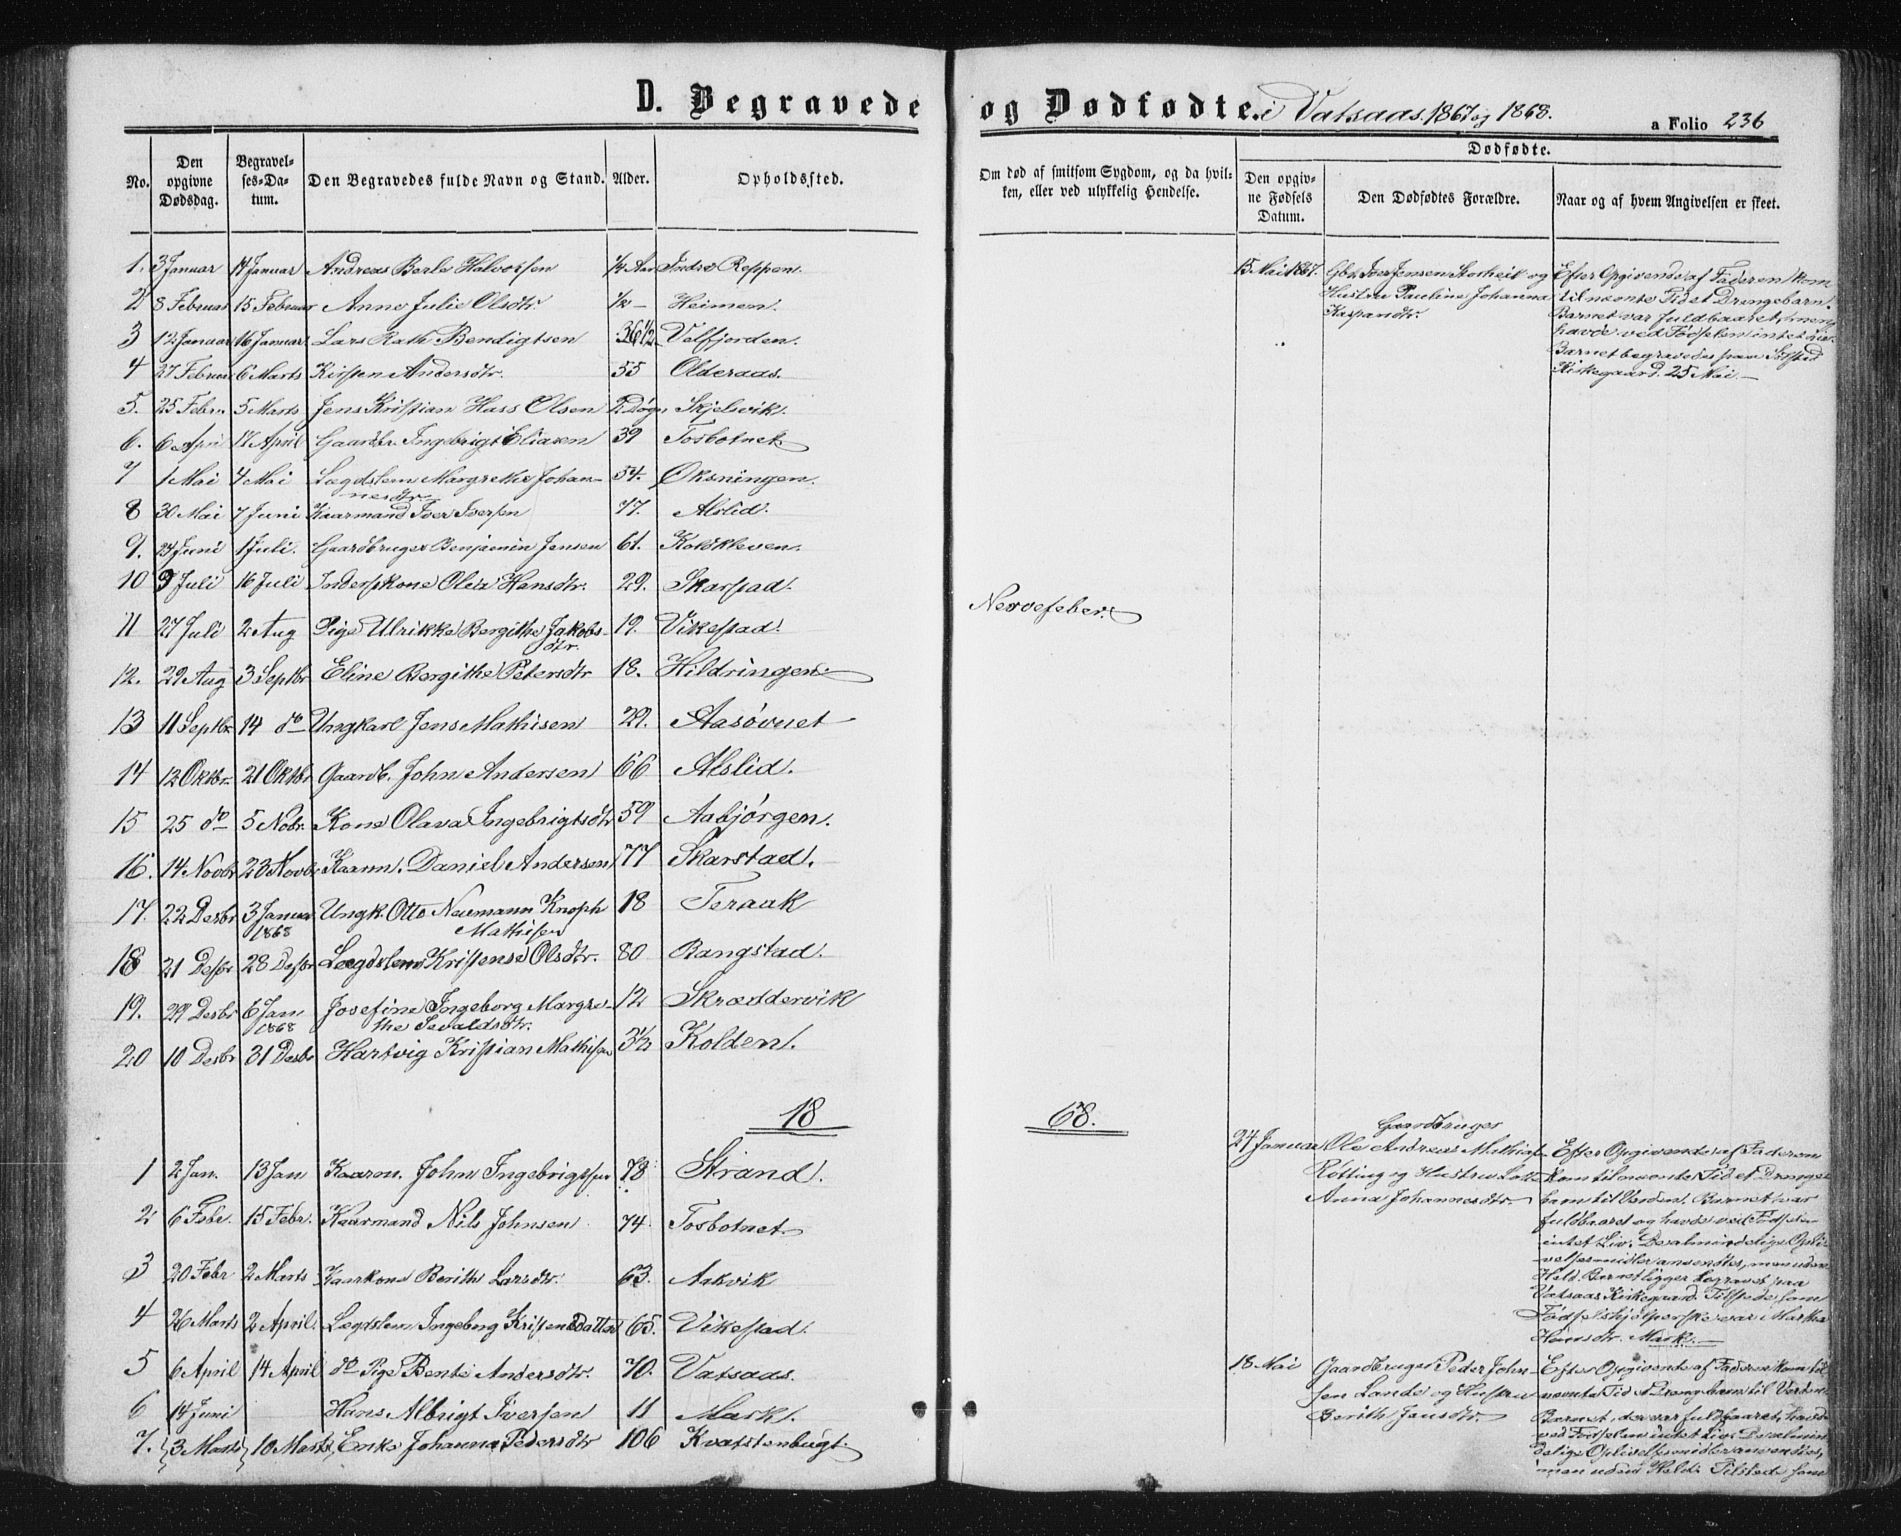 D. Begravede og Dødfødte. i Vatsaas 1867 og 1868. a Folio 236
No. Den opgivne Dødsdag. Begravelses-Datum. Den Begravedes fulde Navn og Stand. Alder. Opholdssted.
Om død af smitsom Sygdom, og da hvilken, eller ved ulykkelig Hendelse.
Dødfødte.
Den opgivne Fødsels Datum. Den Dødfødtes Forældre. Naar og af hvem Angivelsen er skeet.
1. 3 Januar 17 Januar Andreas Berle Halvorsen ½ Aar Indre Reppen.
2 8 Februar 15 Februar Anne Julie Olsdtr. ½ — Heimen.
3 12 Januar 16 Januar Lars Rath Bendigtsen 36½ Velfjorden.
4 27 Februar 6 Marts Kirsten Andersdtr. 55 Olderaas.
5. 25 Febr. 5 Marts Jens Kristian Hass Olsen 2 Døgn Skjelsvik.
6. 6 April 17 April Gaardbr. Ingebrigt Eliasen 39 Tosbotnet
7 1 Mai 4 Mai Lægdslem Margrethe Johan-
nesdtr.
54. Øksningen.
8 30 Mai 7 Juni Kaarmand Iver Iversen 77. Alslid.
9. 24 Juni 1 Juli. Gaardbruger Benjamin Jensen 61. Kolskleven.
10 9 Juli 16 Juli Inderstkone Olea Hansdtr. 29. Skarstad.
11 27 Juli 2 Aug Pige Ulrikke Bergithe Jakobs-
dtr.
19. Vikestad. Nervefeber.
12. 29 Aug 3 Septbr Eline Bergithe Petersdtr 18. Hildringen
13 11 Septbr. 14 do Ungkarl Jens Mathisen 29. Aasøvnet
14 12 Oktbr. 21 Oktbr Gaardb. John Andersen 66 Alslid.
15 25 do 5 Nobr. Kone Olava Ingebrigtsdtr 59 Aabjørgen.
16. 14 Novbr 23 Novbr Kaarm. Daniel Andersen 77 Skarstad.
17. 22 Desbr 3 Januar Ungk. Otto Neumann Knoph 18 Teraak
1868 Mathisen
18 21 Desbr 28 Desbr Lægdslem Kristense Olsdtr. 80 Bangstad.
19. 29 Desbr 6 Jan Josefine Ingeborg Margre- 12 Skrædervik
1868 the Sevaldsdtr.
20 10 Desbr 31 Desbr Hartvig Kristian Mathisen 3½ Kolden.
18 68.
1 2 Jan. 13 Jan Kaarm. John Ingebrigtsen 78 Strand.
2 6 Febr. 15 Febr. Kaarmand Nils Johnsen 74. Tosbotnet
3 20 Febr 2 Marts Kaarkone Berith Larsdtr. 63. Aakvik
4 26 Marts 2 April Lægdslem Ingeborg Kristensdatter 65. Vikestad.
5 6 April 14 April do Pige Bente Andersdtr. 70. Vatsaas.
6 14 Juni Hans Albrigt Iversen 11 Mark.
7. 3 Marts 10 Marts Enke Johanna Pedersdtr 106 Kvatstenbugt.
15 Mai 1867. Gbr. Iver Jensen Storheil og
Hustru Pauline Johanna
Kaspardtr.
Efter Opgivende af Faderen kom
til nævnte Tid et Drengebarn.
Barnet var fuldbaaret, men
havde ved Fødselen intet Liv.
Barnet begravedes paa Solstad
Kirkegaard. 25 Mai. —
24 Januar Gaardbruger
Ole Andreas Mathias
Rotting og Hustru
Anna Johannesdtr.
Efter Opgivende af Faderen
kom til nævnte Tid et Drenge-
barn til Verden. Barnet var
fuldbaaret og havde ved Fødselen
intet Liv. De almindelige Opli-
velsesmidler anvendtes, men uden
Held. Barnet ligger begravet paa
Vatsaas Kirkegaard. Tilstede som
Fødselshjælperske var Martha
Hansdtr. Mark.
18 Mai Gaardbruger Peder John-
sen Lande og Hustru
Berith Jensdtr.
Efter Opgivende af Faderen kom til
nævnte Tid et Drengebarn til Verden.
Barnet, der var fuldbaaret, havde
ved Fødselen intet Liv. De almin-
delige Oplivelsesmidler anvendtes,
men uden Held. Tilstede som